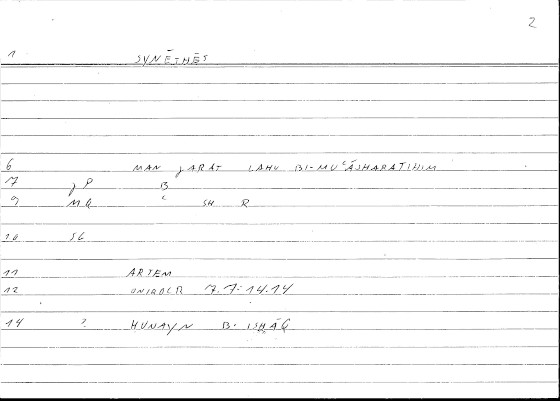 2
1 SYNĒTHĒS
6 MAN JARAT LAHU BI-MUʿĀSHARATIHIM
7 J P B
9 MQ ʿ SH R
10 SL
11 ARTEM
12 ONIROCR 7.7:14.14
14 ? ḤUNAYN B. ISḤĀQ